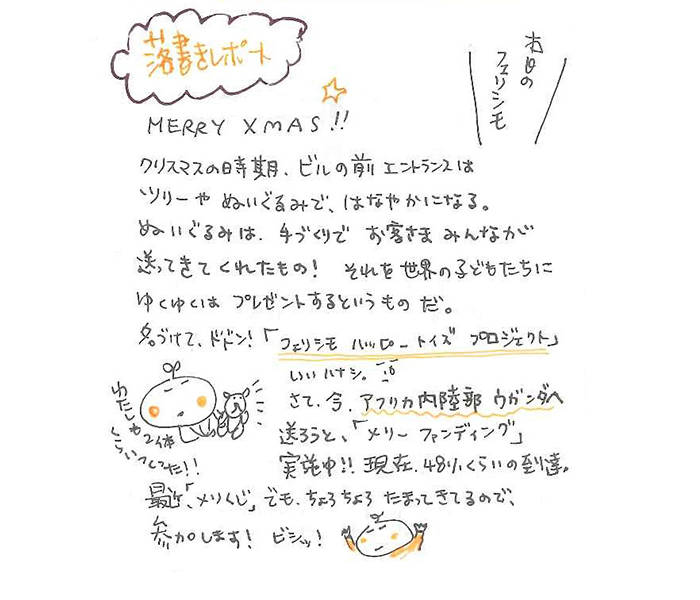 落書きレポート
本日の
フェリシモ
MERRY XMAS!!
クリスマスの時期、ビルの前エントランスは
ツリーや ぬいぐるみで、はなやかになる。
ぬいぐるみは、手づくりで お客さま みんなが
送ってきてくれたもの! それを世界の子どもたちに
ゆくゆくは プレゼントするというもの だ。
名づけて、ドドン!「フェリシモ ハッピートイズ プロジェクト」
いいハナシ。
さて、今、アフリカ内陸部 ウガンダへ
送ろうと、「メリー ファンディング」
実施中!! 現在、48%くらいの到達。
わたしも2体
くらいつくった!!
最近、「メリくじ」でも、ちょろちょろ たまってきてるので、
参加します! ビシッ!